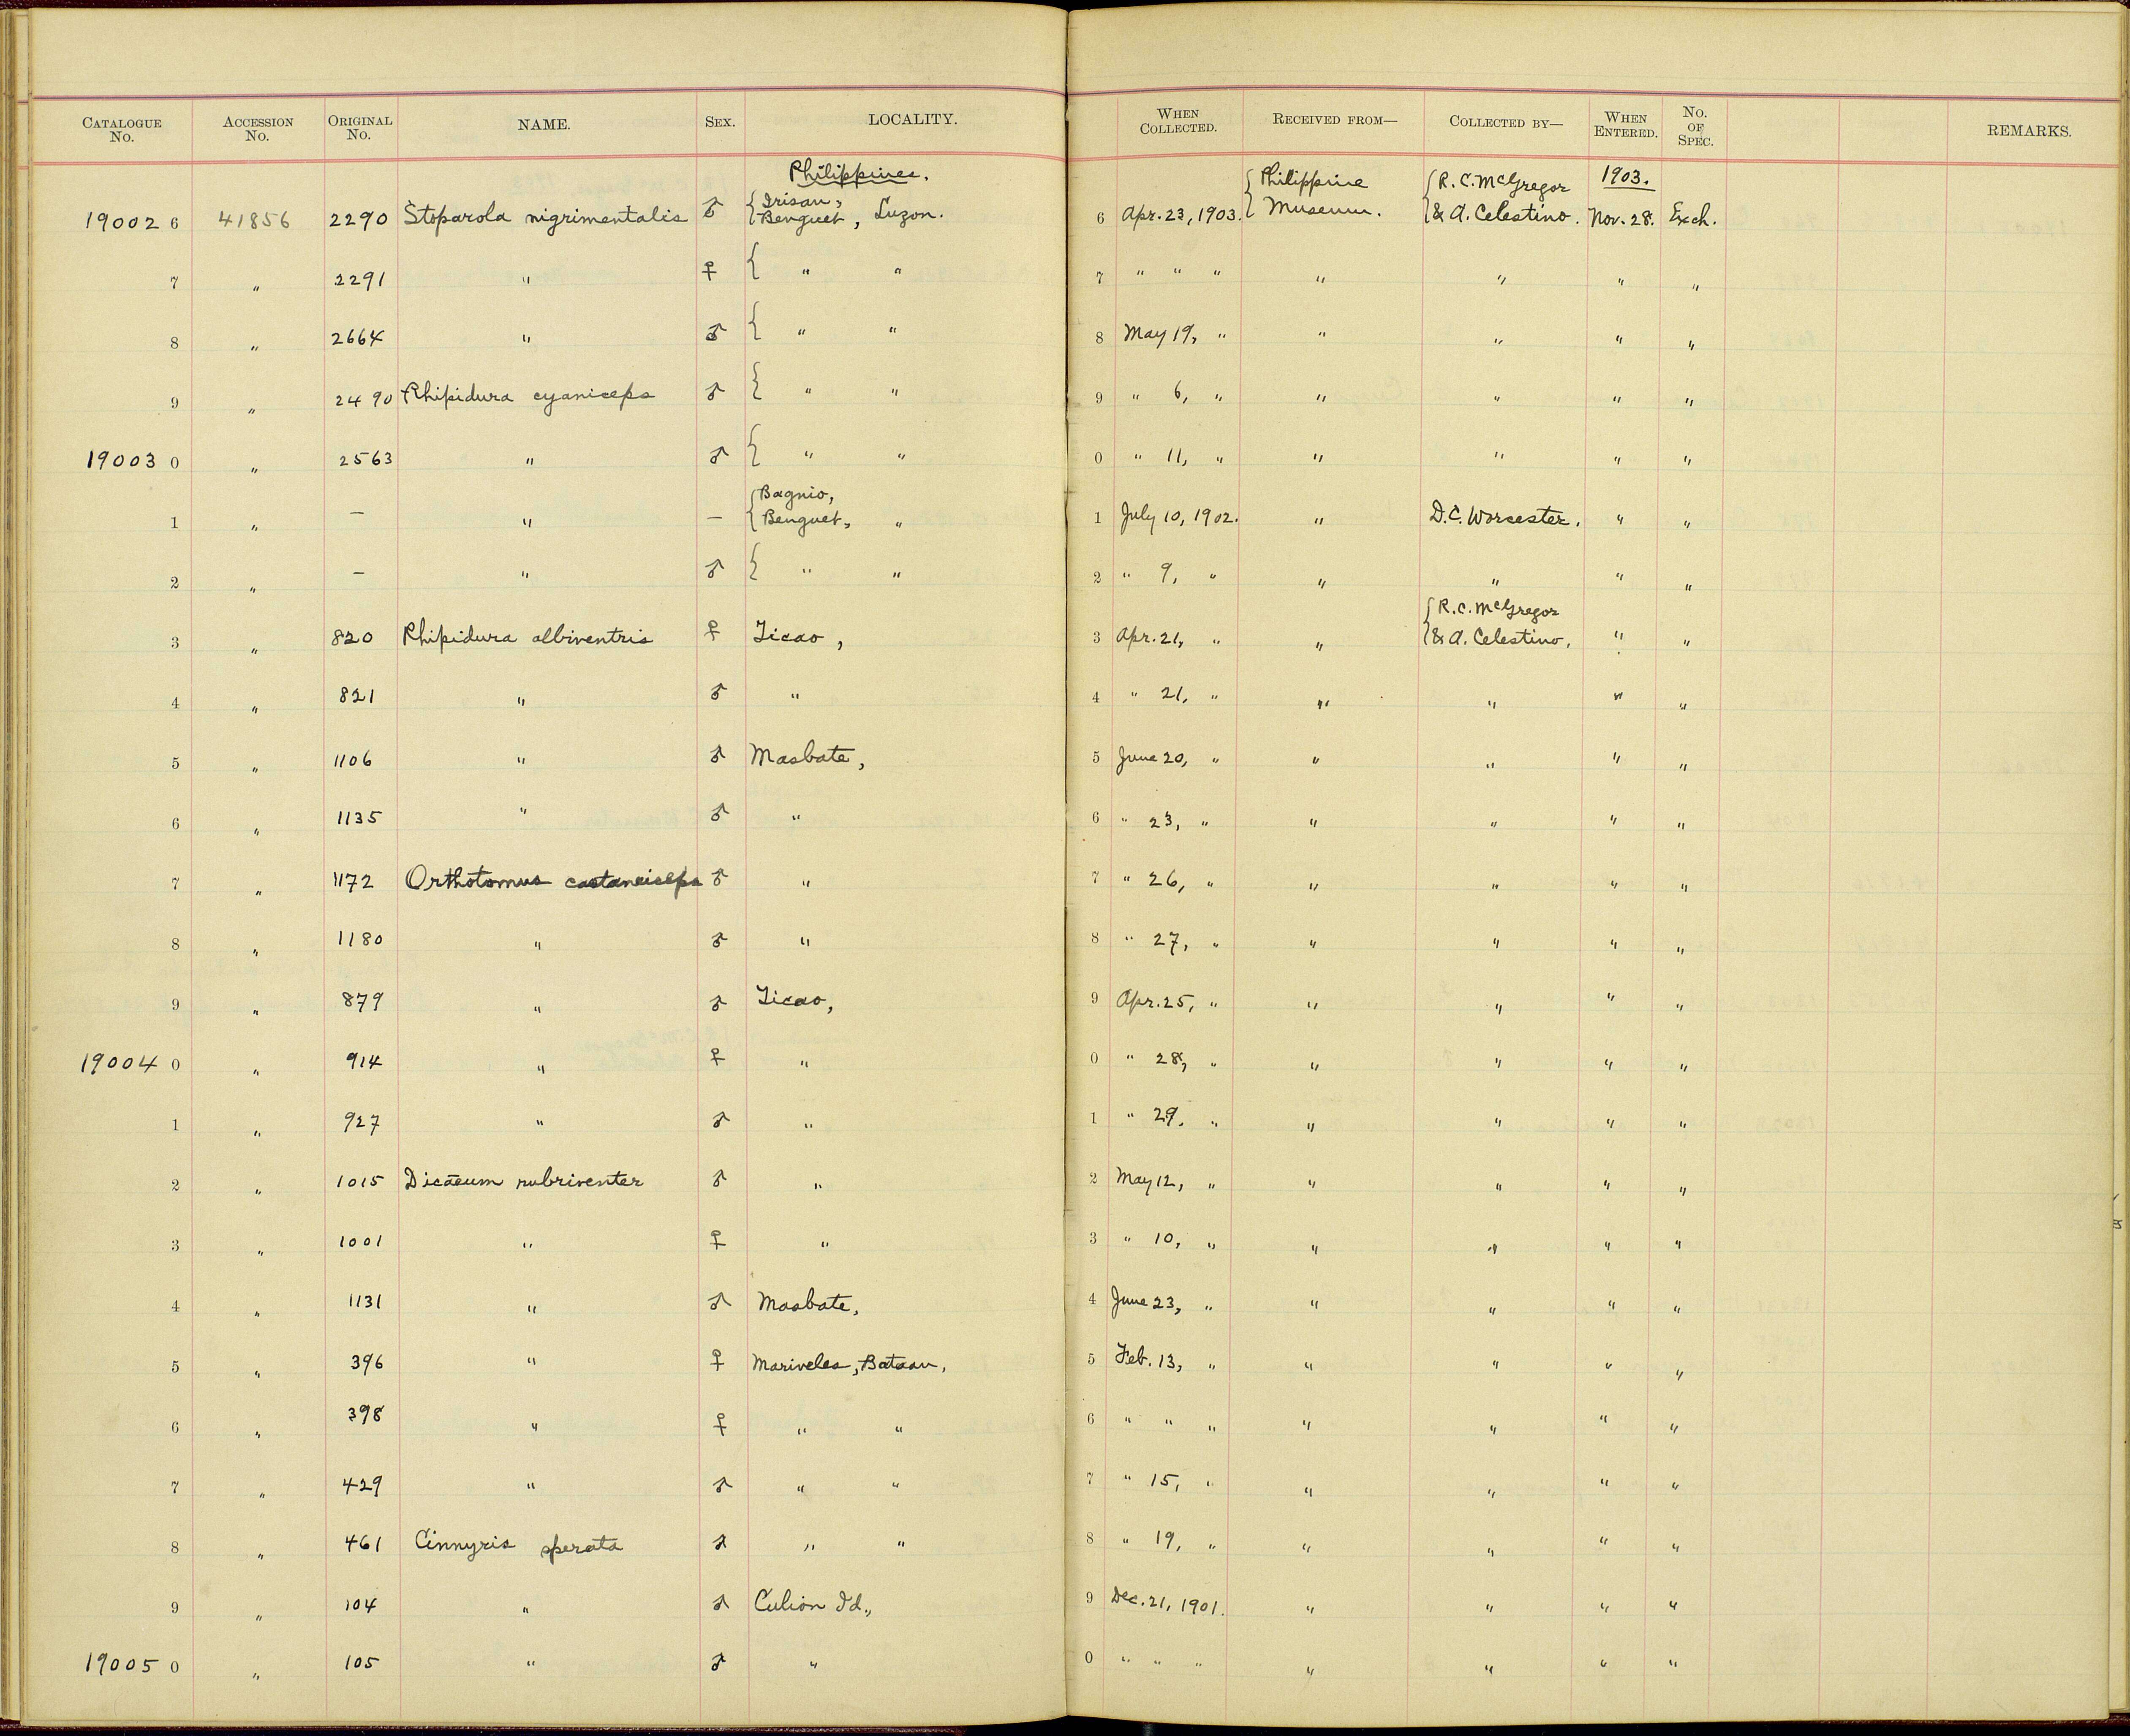 CATALOGUE No. ACCESSION No. ORIGINAL No. NAME. SEX. LOCALITY. WHEN COLLECTED. RECEIVED FROM— COLLECTED BY— WHEN ENTERED. No. OF SPEC. REMARKS.
Philippines. { Philippine { R. C. McGregor 1903.
19002 6 41856 2290 Stoparola nigrimentalis ♂ { Irisan, Benguet, Luzon. 6 Apr. 23, 1903. Museum. & A. Celestino. Nov. 28. Exch.
7 " 2291 " ♀ { " " 7 " " " " " " "
8 " 2664 " ♂ { " " 8 May 19, " " " " "
9 " 2490 Rhipidura cyaniceps ♂ { " " 9 " 6, " " " " "
19003 0 " 2563 " ♂ { " " 0 " 11, " " " " "
1 " — " — { Bagnio, Benguet, " 1 July 10, 1902. " D. C. Worcester. " "
2 " — " ♂ { " " 2 " 9, " " " " "
3 " 820 Rhipidura albiventris ♀ Ticao, 3 Apr. 21, " " { R. C. McGregor & A. Celestino. " "
4 " 821 " ♂ " 4 " 21, " " " " "
5 " 1106 " ♂ Masbate, 5 June 20, " " " " "
6 " 1135 " ♂ " 6 " 23, " " " " "
7 " 1172 Orthotomus castaneiceps ♂ " 7 " 26, " " " " "
8 " 1180 " ♂ " 8 " 27, " " " " "
9 " 879 " ♂ Ticao, 9 Apr. 25, " " " " "
19004 0 " 914 " ♀ " 0 " 28, " " " " "
1 " 927 " ♂ " 1 " 29, " " " " "
2 " 1015 Dicæum rubriventer ♂ " 2 May 12, " " " " "
3 " 1001 " ♀ " 3 " 10, " " " " "
4 " 1131 " ♂ Masbate, 4 June 23, " " " " "
5 " 396 " ♀ Mariveles, Bataan, 5 Feb. 13, " " " " "
6 " 398 " ♀ " " 6 " " " " " " "
7 " 429 " ♂ " " 7 " 15, " " " " "
8 " 461 Cinnyris sperata ♂ " " 8 " 19, " " " " "
9 " 104 " ♂ Culion Id., 9 Dec. 21, 1901. " " " "
19005 0 " 105 " ♂ " 0 " " " " " " "